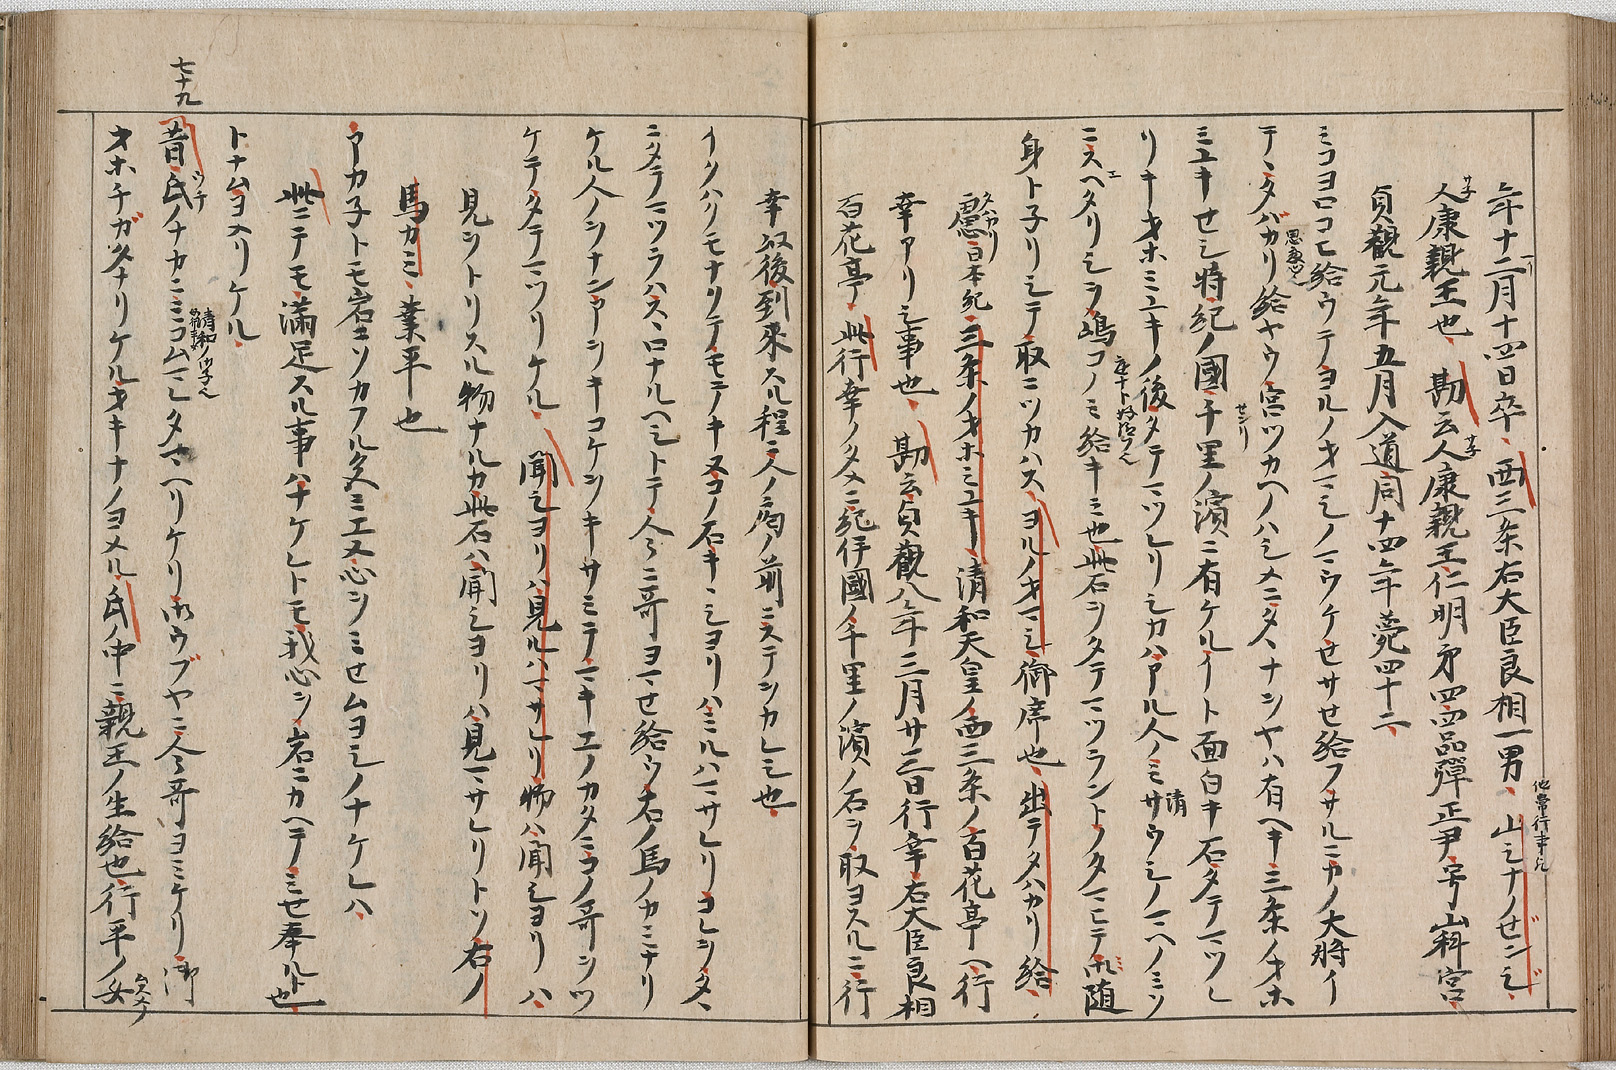 年十二月十四日卒、西三条右大臣良相一男、山シナノゼンジ
他常行事也
人康親王也、勘云人康親王仁明第四四品弾正尹号山科宮
サネ
サネ
貞観元年五月入道同十四年薨四十二
ミコヨロコヒ給ウテヨルノオマシノマウケせサせ給フサルニカノ大将イ
テヽタバカリ給ヤウ宮ツカヘノハシメニタヽナンヤハ有ヘキ三条ノオホ
思慮也
ミユキせシ時紀ノ國千里ノ濱ニ有ケルイト面白キ石タテマツレ
せンリ
リキオホミユキノ後タテマツレリシカハアル人ノミサウシノマヘノミソ
清
ニスヘタリシヲ嶋コノミ給キミ也此石ヲタテマツラントノタマヒテ御随
エ
身トネリシテ取ニツカハス、ヨルノオマシ御席也、出テタハカリ給
慮日本紀三条ノオホミユキ清和天皇ノ西三条ノ百花亭ヘ行
タハカリ
幸アリシ事也、勘云貞観八年三月廿三日行幸右大臣良相
百花亭、此行幸ノタメニ紀伊國ノ千里ノ濱ノ石ヲ取ヨスルニ行
幸以後到来スル程ニ人ノ局ノ前ニステヲカレシ也
イクハクモナクテモテキヌコノ石キヽシヨリハミルハマサレリコレヲタヽ
ニタテマツラハスヽロナルヘシトテ人々ニ哥ヨマせ給ウ右ノ馬ノカミナリ
ケル人ノヲナンアヲキコケヲキサミテマキエノカタニコノ哥ヲツ
ケテタテマツリケル、聞シヨリハ見ルハマサレリ物ハ聞シヨリハ
見ヲトリスル物ナルカ此石ハ聞シヨリハ見マサレリトソ右ノ
馬カミ業平也
アカネトモ岩ニソカフル色ミエヌ心ヲミせムヨシノナケレハ
此ニテモ満足スル事ハナケレトモ我心ヲ岩ニカヘテミせ奉ルト也
トナムヨメリケル
七十九
昔氏ノナカニミコムマレタマヘリケリ御ウブヤニ人々哥ヨミケリ御
ウチ
オホチガタナリケルオキナノヨメル、氏ノ中ニ親王ノ生給也行平ノ女